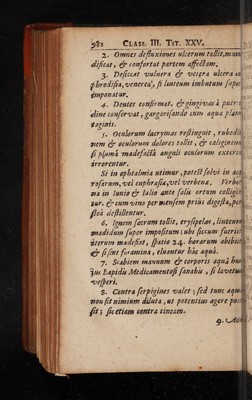 982 CLASS. III. TIT. XXV.
2. Omnes defluxiones ulcerum tollit, mun
dificat, & confortat partem affectam.
3. Desiccat vulnera & vetera ulcera
phrodisia, venerea, si linteum imbutum super
imponatur.
4. Dentes confirmat, & gingivas à
dine conservat, gargarisando cum aqua
taginis.
5. Oculorum lacrymas restinguit, rubedi
nem & oculorum dolores tollit, & caliginem
si plumâ madefactâ anguli oculorum exterio
irrorentur.
Si in ophtalmia utimur, potest solvi in aq
rosarum, vel euphrasia, vel verbena. Verbe
na in Iunio & Iulio ante solis ortum colligi
tur, & cum vino per mensem prius digesta, po
stea destillentur.
6. Ignem sacrum tollit, erysipelas, linteum
madidum super impositum: ubi siccum fuerit
iterum madefiat, spatio 24. horarum abibit
& si sint foramina, eluantur hâc aquâ.
7. Scabiem manuum & corporis aquâ
jus Lapidis Medicamentosi sanabis, si lavetur
vesperi.
8. Contra serpigines valet; sed tunc aqua
non sit nimium diluta, ut potentius agere pos
sit; sic etiam contra tineam.
9.